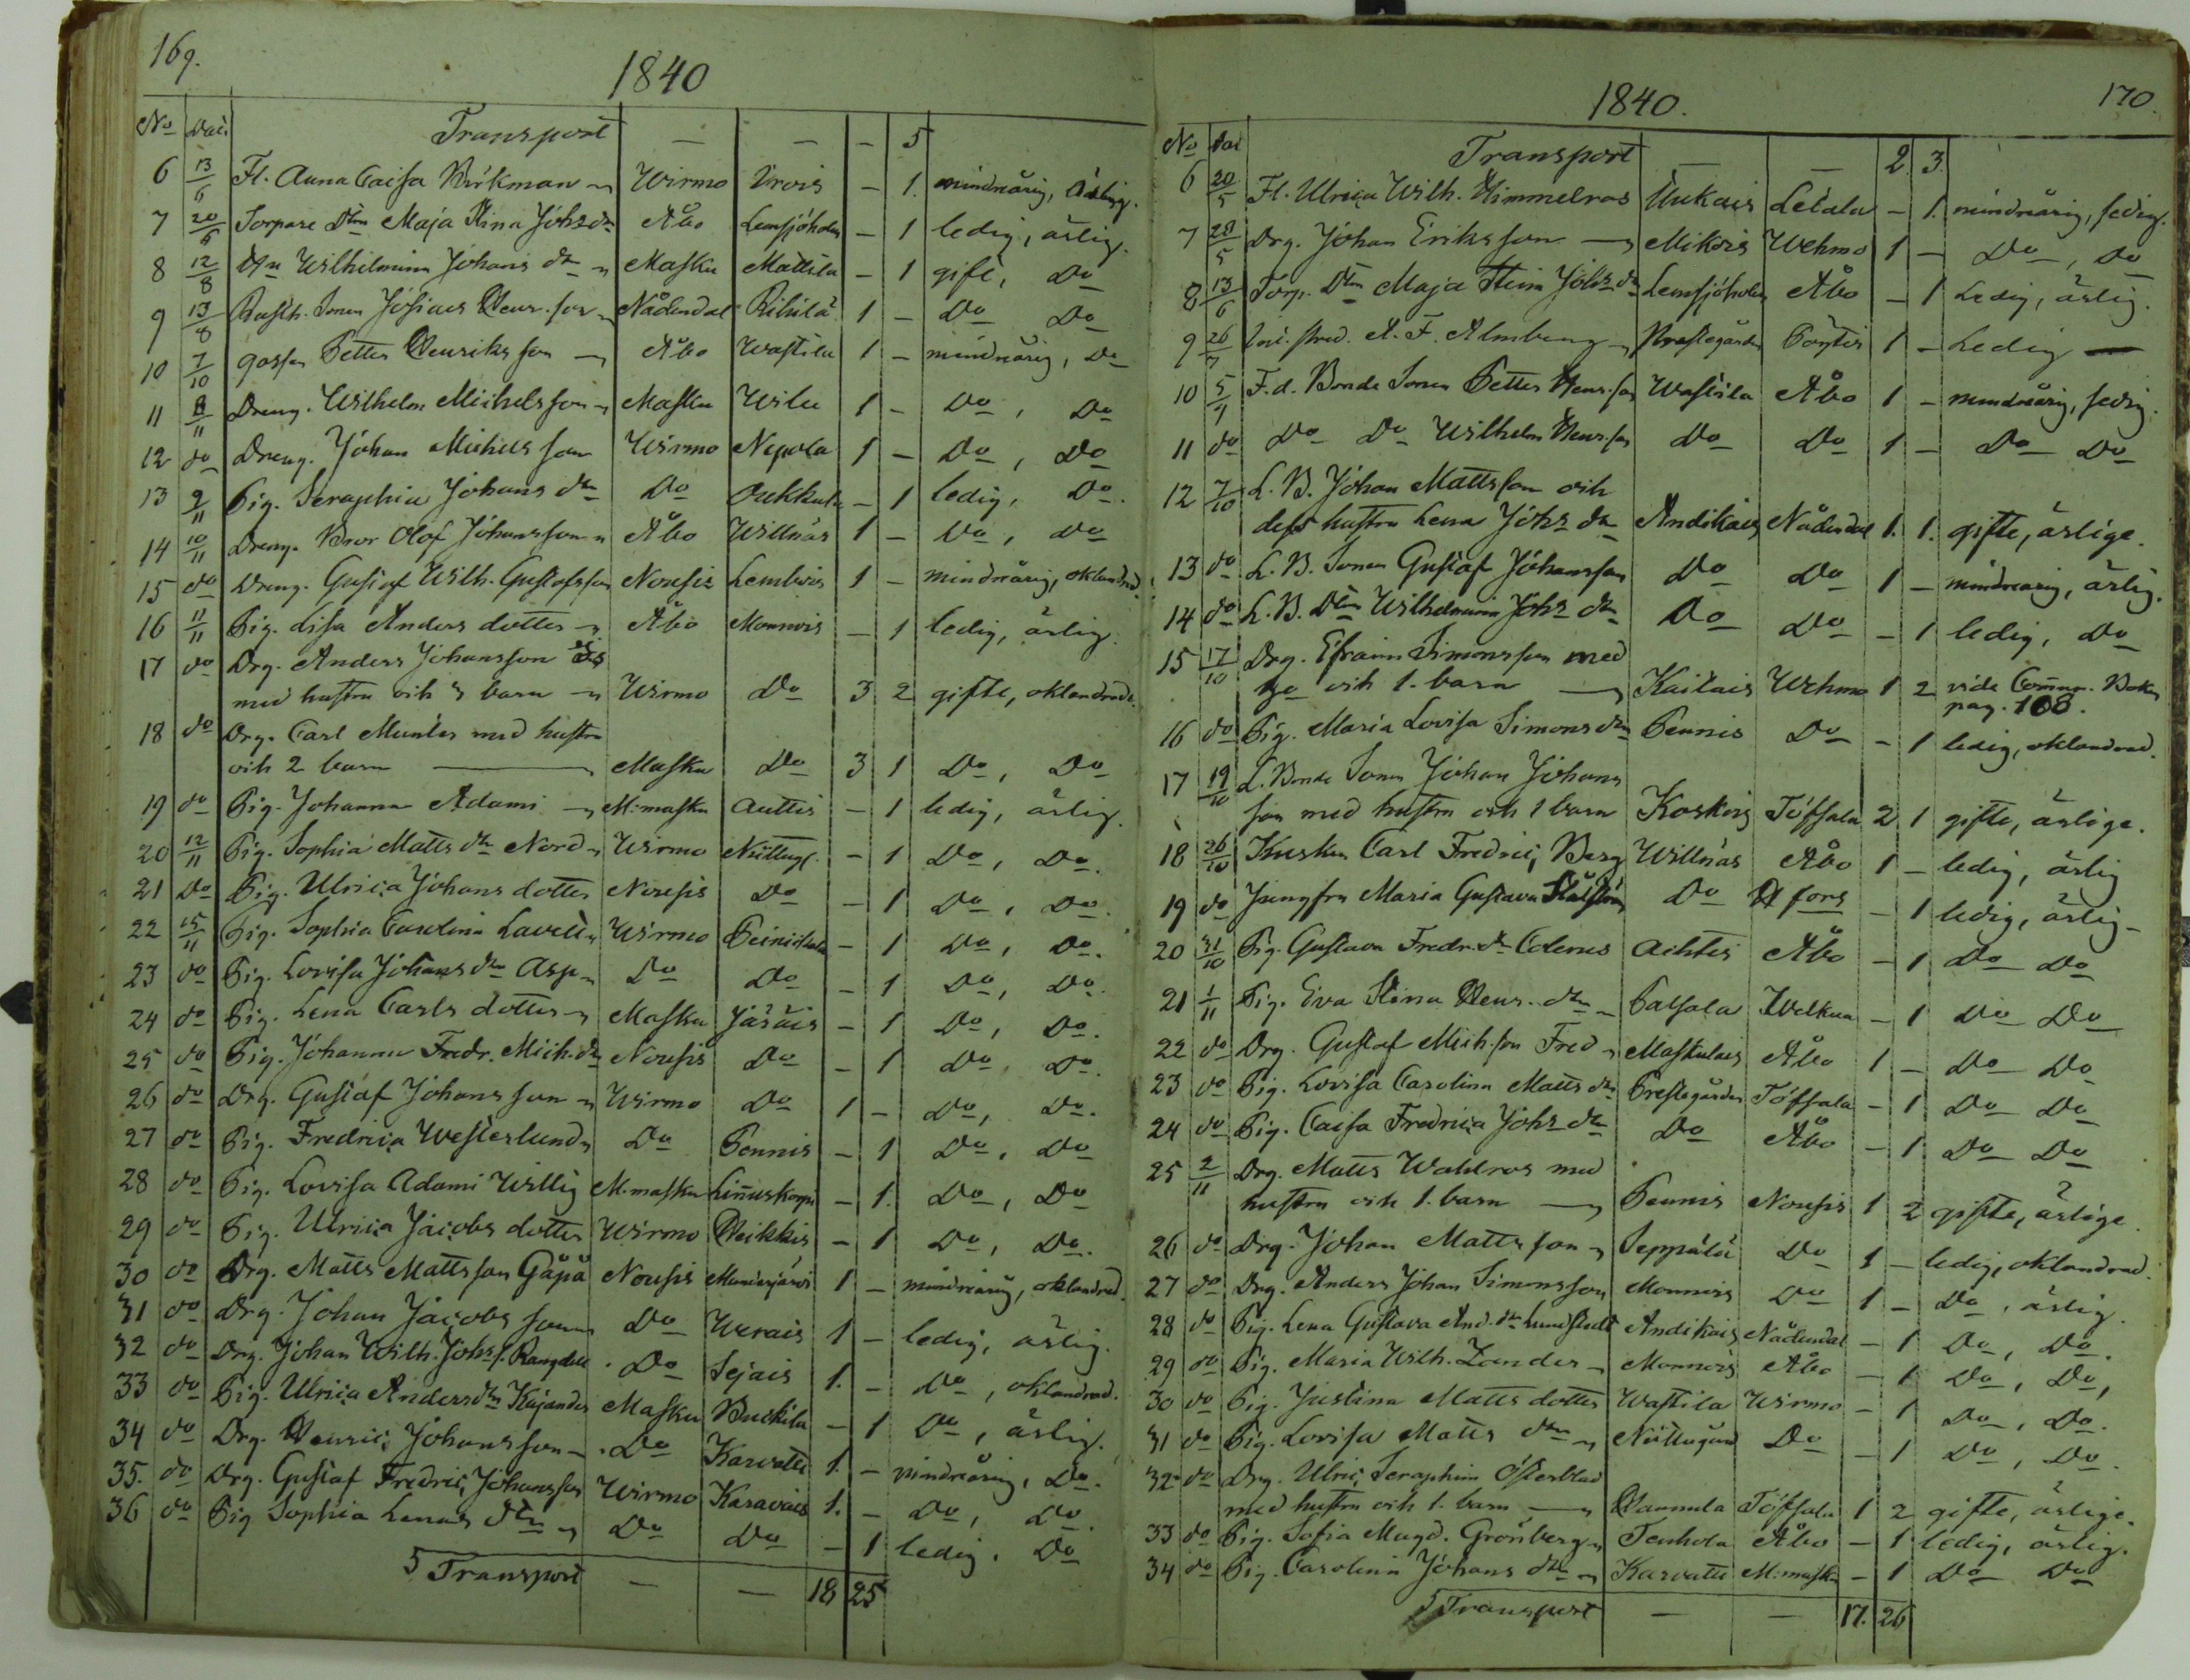 169.
1840
No Dat. Transport — — - 5
6 13/6 Fl. Anna Caisa Wirmo - 1. mindreårig, ärlig.
7 20/6 Torpare Dtm Maja Stina Johsdr Åbo Lemsjöholm - 1 ledig, ärlig.
8 12/8 Wilhelmina Johans dr Masku Mattila - 1 gift, Do
9 13/8 Josias Henr. son Nådendal 1 - Do Do
10 7/10 gossen Petter Henriksson Åbo Wastila 1 - mindreårig, Do
11 8/11 Dreng. Wilhelm Michelsson Masku Wilu 1 - Do, Do
12 do Dreng. Johan Michelsson Wirmo Nepola 1 - Do, Do
13 9/11 Pig. Seraphia Johans dr Do - 1 ledig, Do.
14 10/11 Dreng. Olof Johansson Åbo Willnäs 1 - Do, Do
15 do Dreng. Gustaf Wilh. Gustafsson Nousis Lembois 1 - mindreårig, oklandrad.
16 11/11 Pig. Lisa Anders dotter Åbo Monnois - 1 ledig, ärlig.
17 do Drg. Anders Johansson
med hustru och 3 barn Wirmo Do 3 2 gifte, oklandrade.
18 do Drg. Carl Munter med hustru
och 2 barn — Masku Do 3 1 Do, Do
19 do Pig. Johanna Adami M:masku Auttis - 1 ledig, ärlig.
20 12/11 Pig. Sophia Matts dr Nord Wirmo - 1 Do, Do.
21 Do Pig. Ulrica Johans dotter Nousis Do - 1 Do, Do.
22 15/11 Pig. Sophia Carolina Wirmo - 1 Do, Do.
23 do Pig. Lovisa Johans dr Asp Do Do - 1 Do, Do.
24 do Pig. Lena Carls dotter Masku - 1 Do, Do.
25 do Pig. Johanna Fredr. Mich. dr Nousis Do - 1 Do, Do.
26 do Drg. Gustaf Johansson Wirmo Do 1 - Do, Do.
27 do Pig. Fredrica Westerlund Do Pennis - 1 Do, Do
28 do Pig. Lovisa Adami Willig M:masku - 1. Do, Do
29 do Pig. Ulrica Jacobs dotter Wirmo Heikkis - 1 Do, Do.
30 do Drg. Matts Mattsson Gäpä Nousis 1 - mindreårig, oklandrad.
31 do Drg. Johan Jacobs son Do Werais 1 - ledig, ärlig.
32 do Drg. Johan Wilh. Johs s. Do Sejais 1. - Do, oklandrad.
33 do Pig. Ulrica Anders dr Kajander Masku - 1 Do, ärlig.
34 do Drg. Henric Johansson Do Karvatti 1. - mindreårig, Do.
35. do Drg. Gustaf Fredric Johansson Wirmo Karavais 1. - Do, Do.
36 do Pig Sophia Lenas dtr Do Do - 1 ledig. Do
Transport — — 18 25
1840.
170.
No Dat Transport — — 2. 3.
6 20/5 Fl. Ulrica Wilh. Himmelros Letala - 1. mindreårig, sedig.
7 28/5 Drg. Johan Eriksson Mikois Wehmo 1 - Do, Do
8 13/6 Torp. Dtm Maja Stina Johs dr Lemsjöholm Åbo - 1 Ledig, ärlig.
9 26/7 A. F. Almberg Prestegården 1 - Ledig —
10 5/9 F.d. Bonde Sonen Petter Henr. son Wastila Åbo 1 - mindreårig, sedig.
11 do Do Do Wilhelm Henr. son Do Do 1 - Do Do
12 7/10 L. B. Johan Mattsson och
dess hustru Lena Johs dr Andikais Nådendal 1. 1. gifte, ärlige.
13 do L. B. Sonen Gustaf Johansson Do Do 1 - mindreårig, ärlig.
14 do L. B. Dtm Wilhelmina Johs dr Do Do - 1 ledig, Do
15 17/10 Drg. Efraim Simonsson med
och 1. barn — Kaitais Wehmo 1 2 vide Commun. Boken
pag. 108.
16 do Pig. Maria Lovisa Simons dr Pennis Do - 1 ledig, oklandrad.
17 19/10 L. Bonde Sonen Johan Johans
son med hustru och 1 barn Koskois Töfsala 2 1 gifte, ärlige.
18 26/10 Kusken Carl Fredric Berg Willnäs Åbo 1 - ledig, ärlig
19 do Jungfru Maria Gustava Do H fors - 1 ledig, ärlig
20 31/10 Pig. Gustava Fredr. dr Colerus Åbo - 1 Do Do
21 1/11 Pig. Eva Stina Henr. dtr Welkua - 1 Do Do
22 do Drg. Gustaf Mich.son Fred Maskulais Åbo 1 - Do Do
23 do Pig. Lovisa Carolina Matts dr Prestegården Töfsala - 1 Do Do
24 do Pig. Caisa Fredrica Johs dr Do Åbo - 1 Do Do
25 2/11 Drg. Matts Wahlros med
hustru och 1. barn — Pennis Nousis 1 2 gifte, ärlige.
26 do Drg. Johan Mattsson Seppälä Do 1 - ledig, oklandrad.
27 do Drg. Anders Johan Simonsson Monnois Do 1 - Do, ärlig.
28 do Pig. Lena Gustava And. dr Lundstedt Andikais Nådendal - 1 Do, Do.
29 do Pig. Maria Wilh. Zander Monnois Åbo - 1 Do, Do,
30 do Pig. Justina Matts dotter Wastila Wirmo - 1 Do, Do.
31 do Pig. Lovisa Matts dtr Do - 1 Do, Do.
32 do Drg. Ulric Seraphim Österblad
med hustru och 1. barn — Hannula Töfsala 1 2 gifte, ärlige.
33 do Pig. Sofia Magd. Grönberg Tenhola Åbo - 1 ledig, ärlig.
34 do Pig. Carolina Johans dtr Karvatti M:masku - 1 Do Do
Transport — — 17. 26